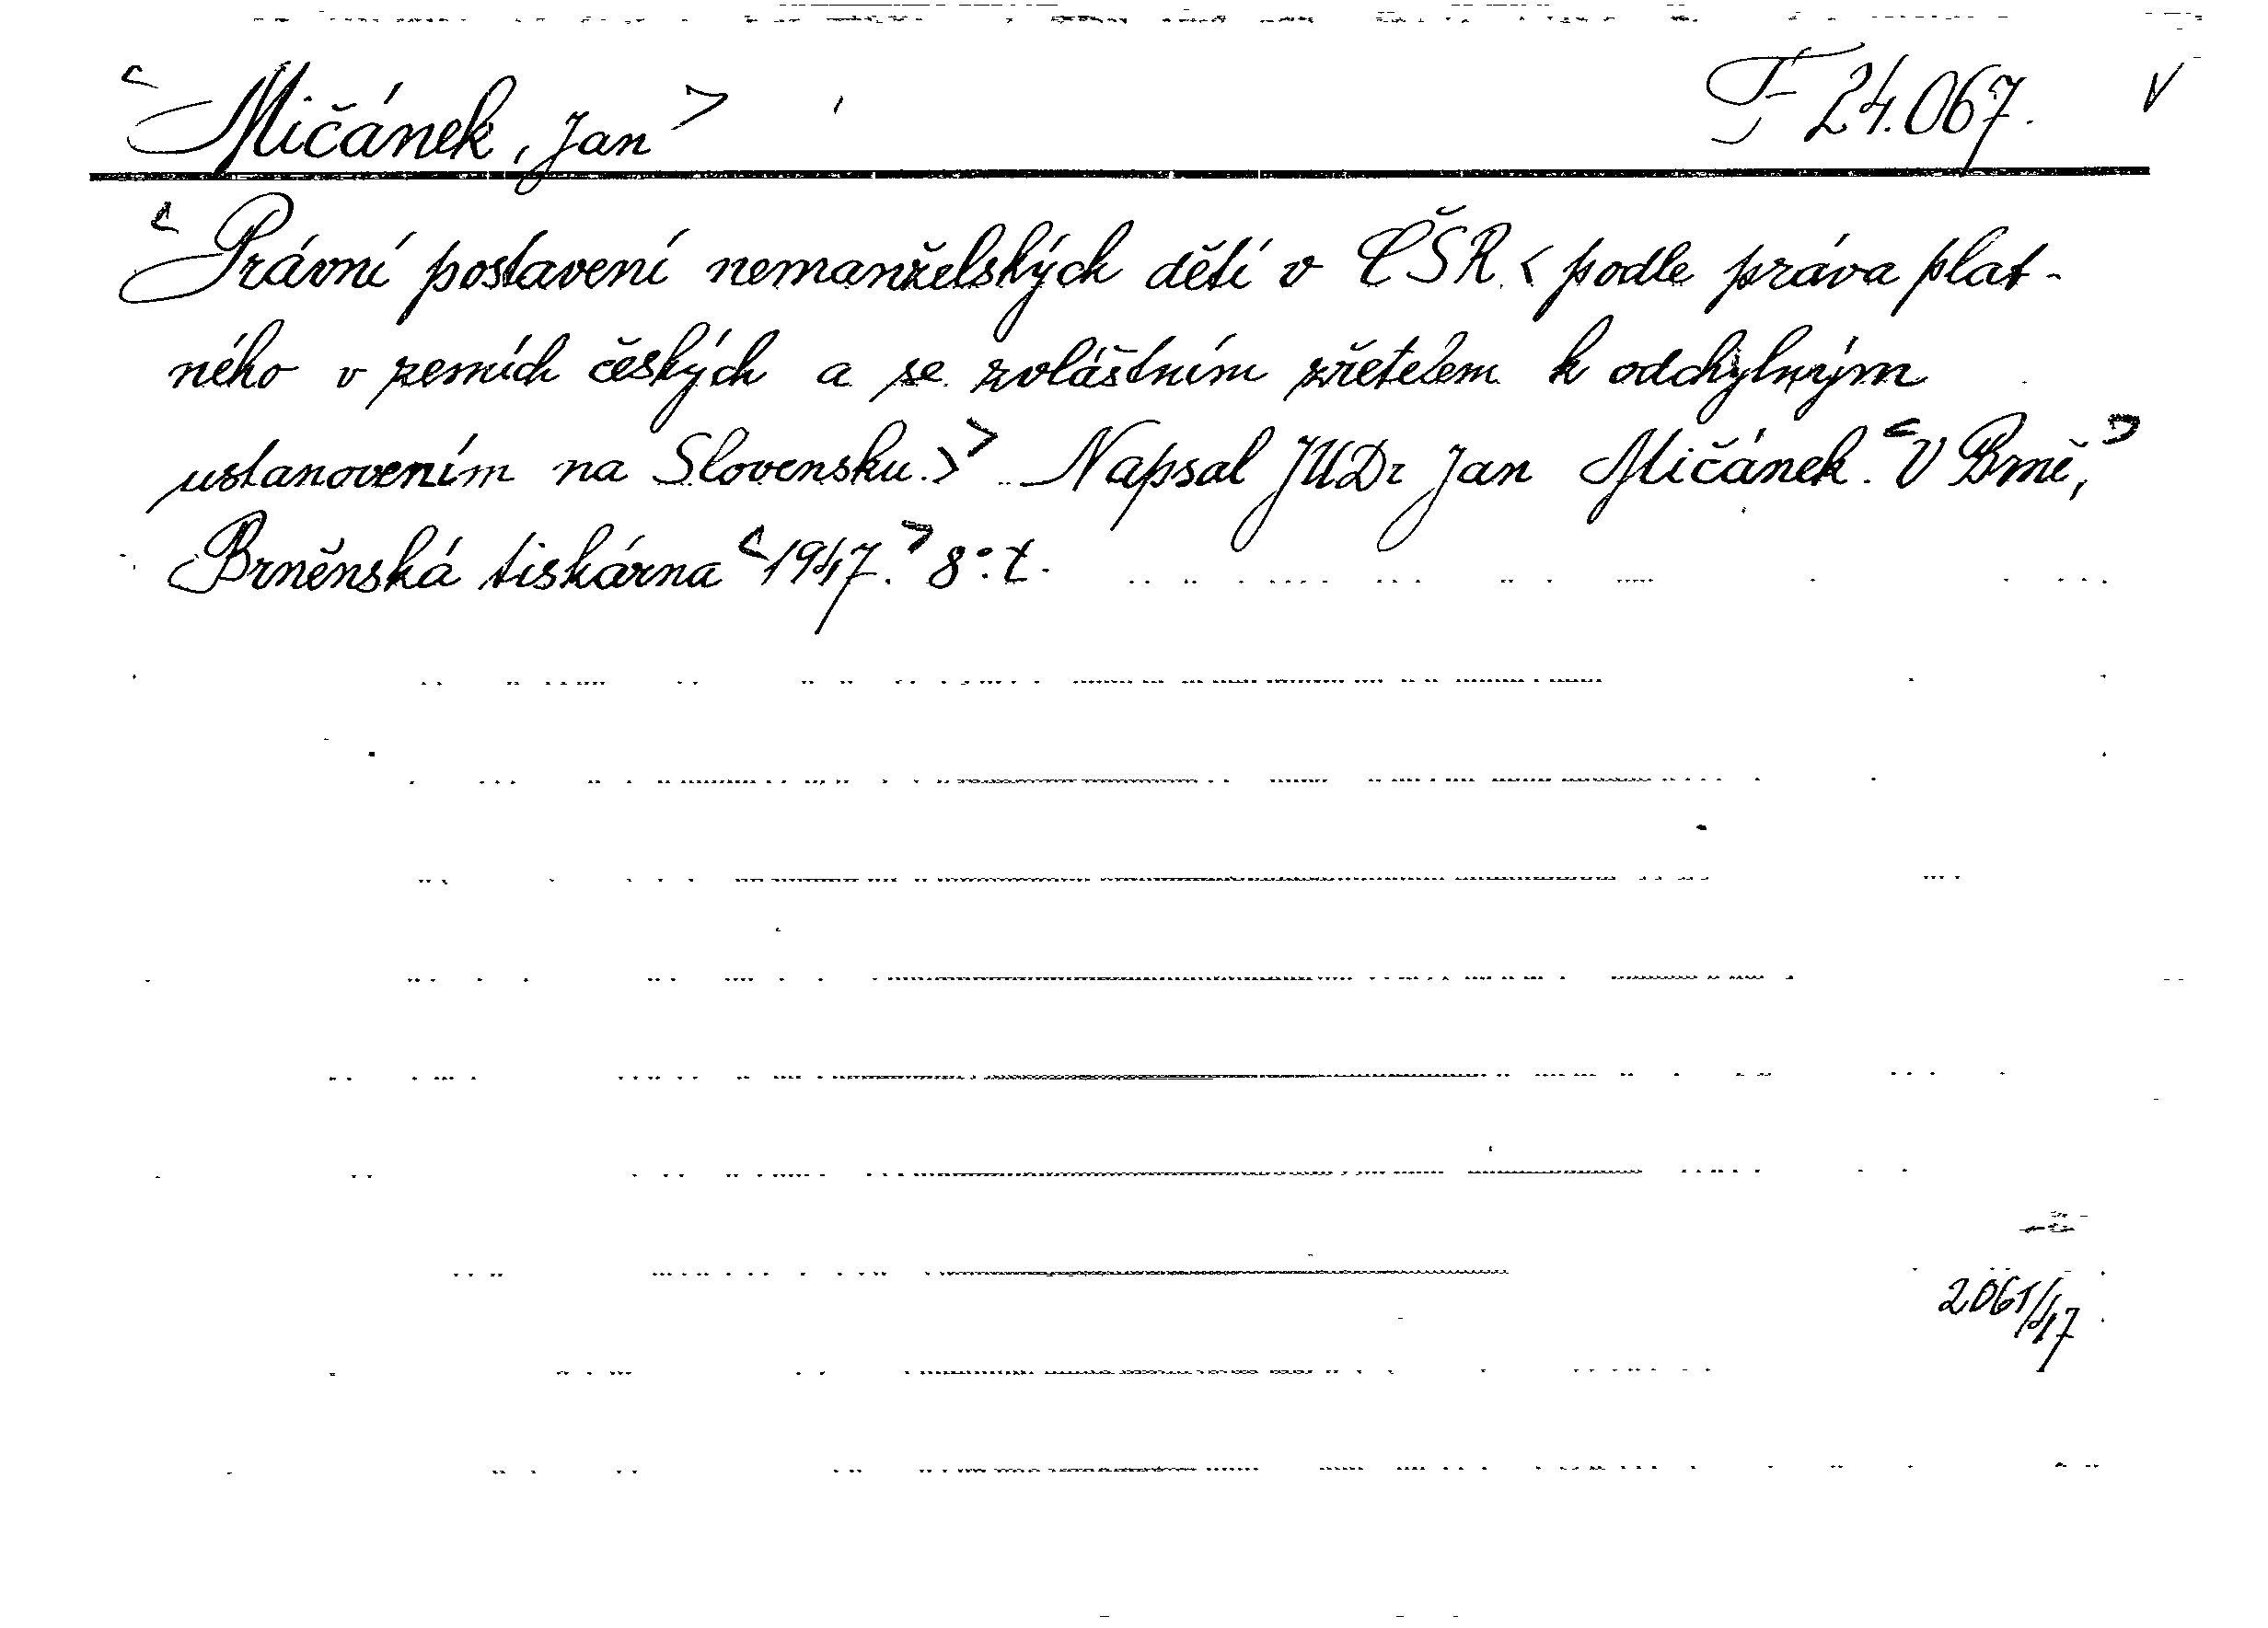 <Mičánek, Jan> F 24.067. V
<Právní postavení nemanželských dětí v ČSR. <podle práva plat-
ného v zemích českých a se zvláštním zřetelem k odchylným
ustanovením na Slovensku.>> Napsal JUDr Jan Mičánek. <V Brně,>
Brněnská tiskárna <1947.> 8°. t.
2061/47